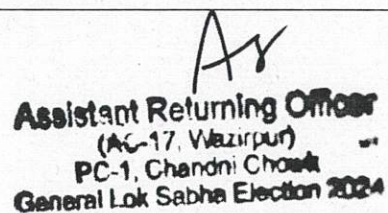 Assistant Returning Officer
(AC-17, Wazirpur)
PC-1, Chandni Chowk
General Lok Sabha Election 2024